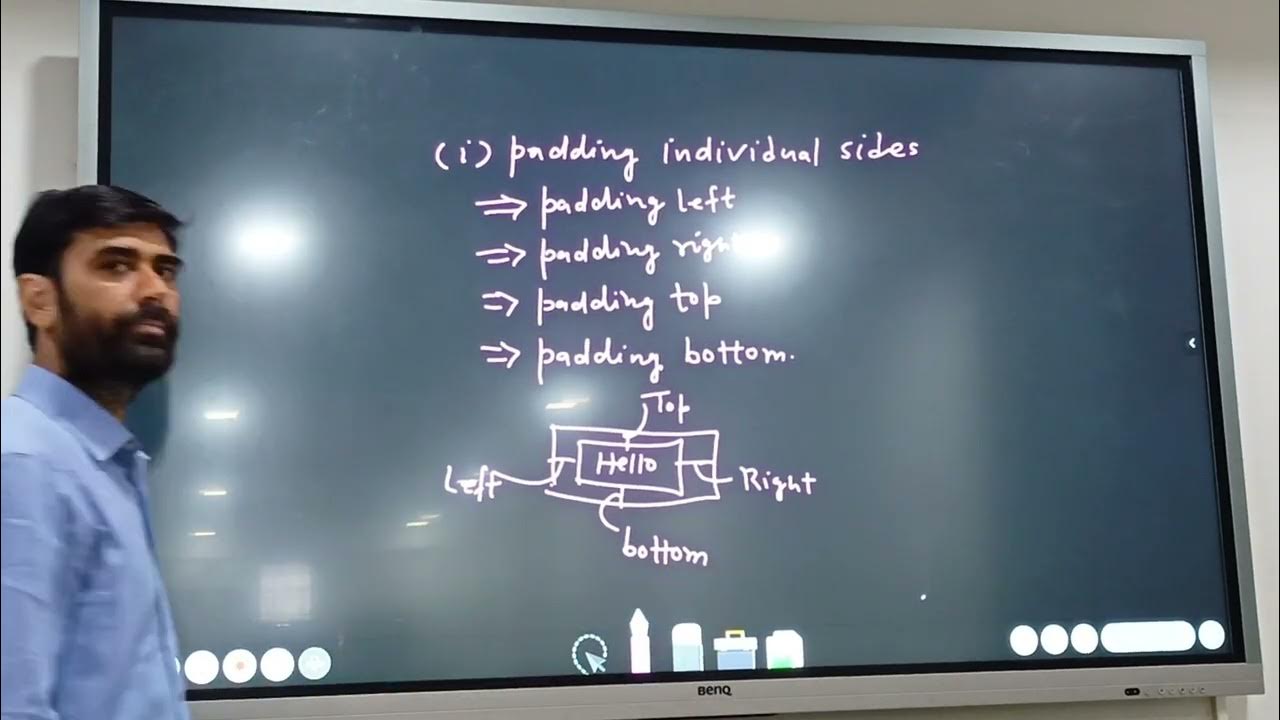 (i) padding individual sides
⇒ padding left
⇒ padding right
⇒ padding top
⇒ padding bottom.
Top
Hello
Left
Right
bottom
BenQ